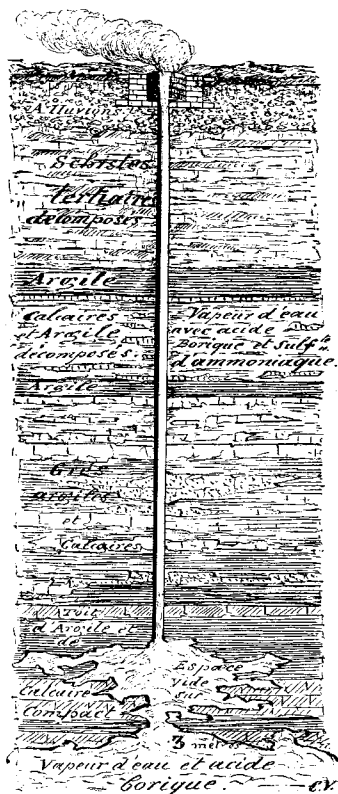 Alluvions
Schistes
tertiaires
décomposés
Argile
Calcaires
et Argile
décomposés.
Vapeur d'eau
avec acide
Borique et Sulf.te
d'ammoniaque.
Argile
Grès
argiles
et
Calcaires
Toit
d'Argile et
de
Calcaire
compact
Espace
vide
sur
3 mètres
Vapeur d'eau et acide
borique.
C.V.